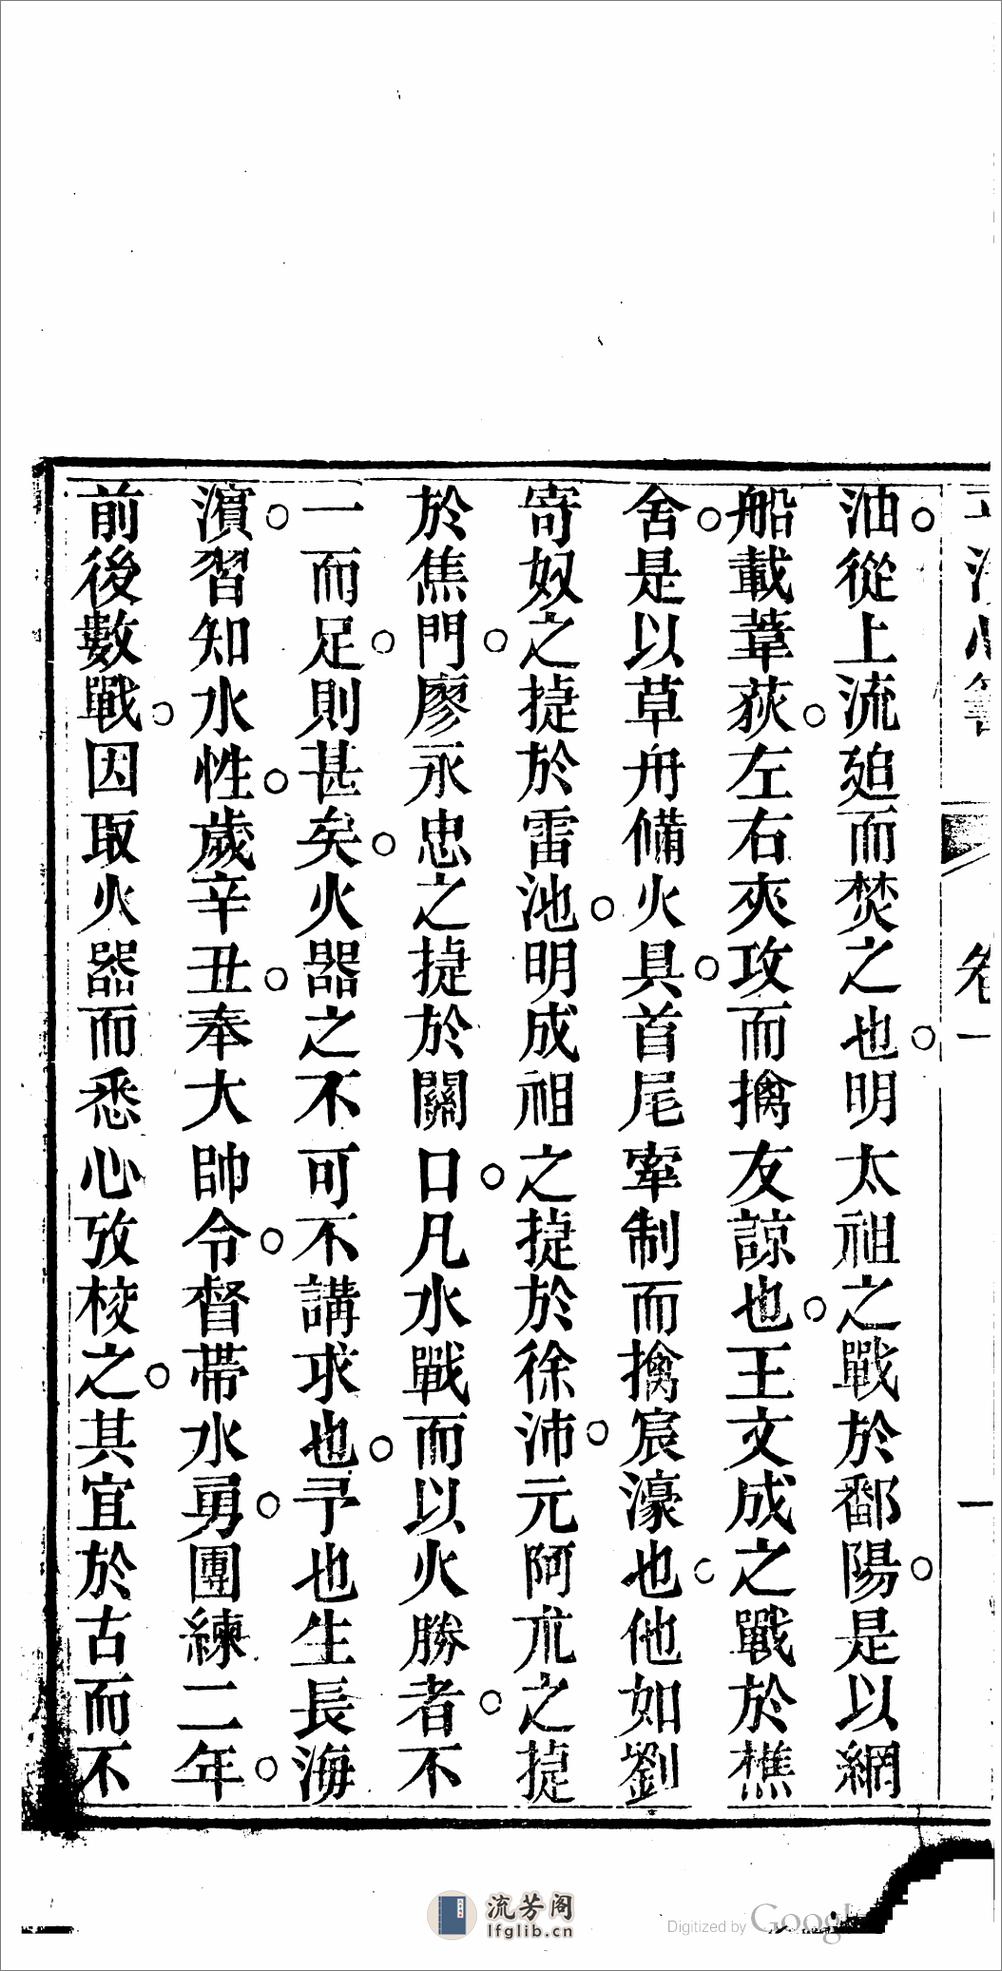 油從上流廹而焚之也明太祖之戰於鄱陽是以網
船載葦荻左右夾攻而擒友諒也王文成之戰於樵
舍是以草舟備火具首尾牽制而擒宸濠也他如劉
寄奴之捷於雷池明成祖之捷於徐沛元阿朮之捷
於焦門廖永忠之捷於關口凡水戰而以火勝者不
一而足則甚矣火器之不可不講求也予也生長海
濱習知水性歲辛丑奉大帥令督帶水勇團練二年
前後數戰因取火器而悉心攷校之其宜於古而不
卷一
一
流芳阁
lfglib.cn
Digitized by Google